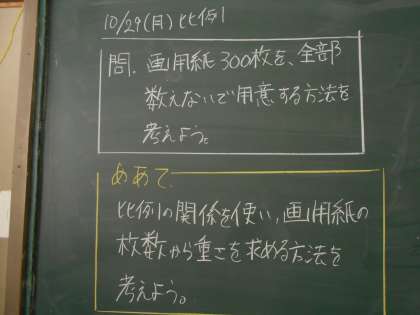 10/29(月)比例
問. 画用紙300枚を、全部
数えないで用意する方法を
考えよう。
めあて.
比例の関係を使い,画用紙の
枚数から重さを求める方法を
考えよう。